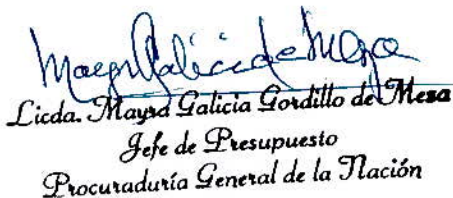 Mayra Galicia de Mesa
Licda. Mayra Galicia Gordillo de Mesa
Jefe de Presupuesto
Procuraduría General de la Nación